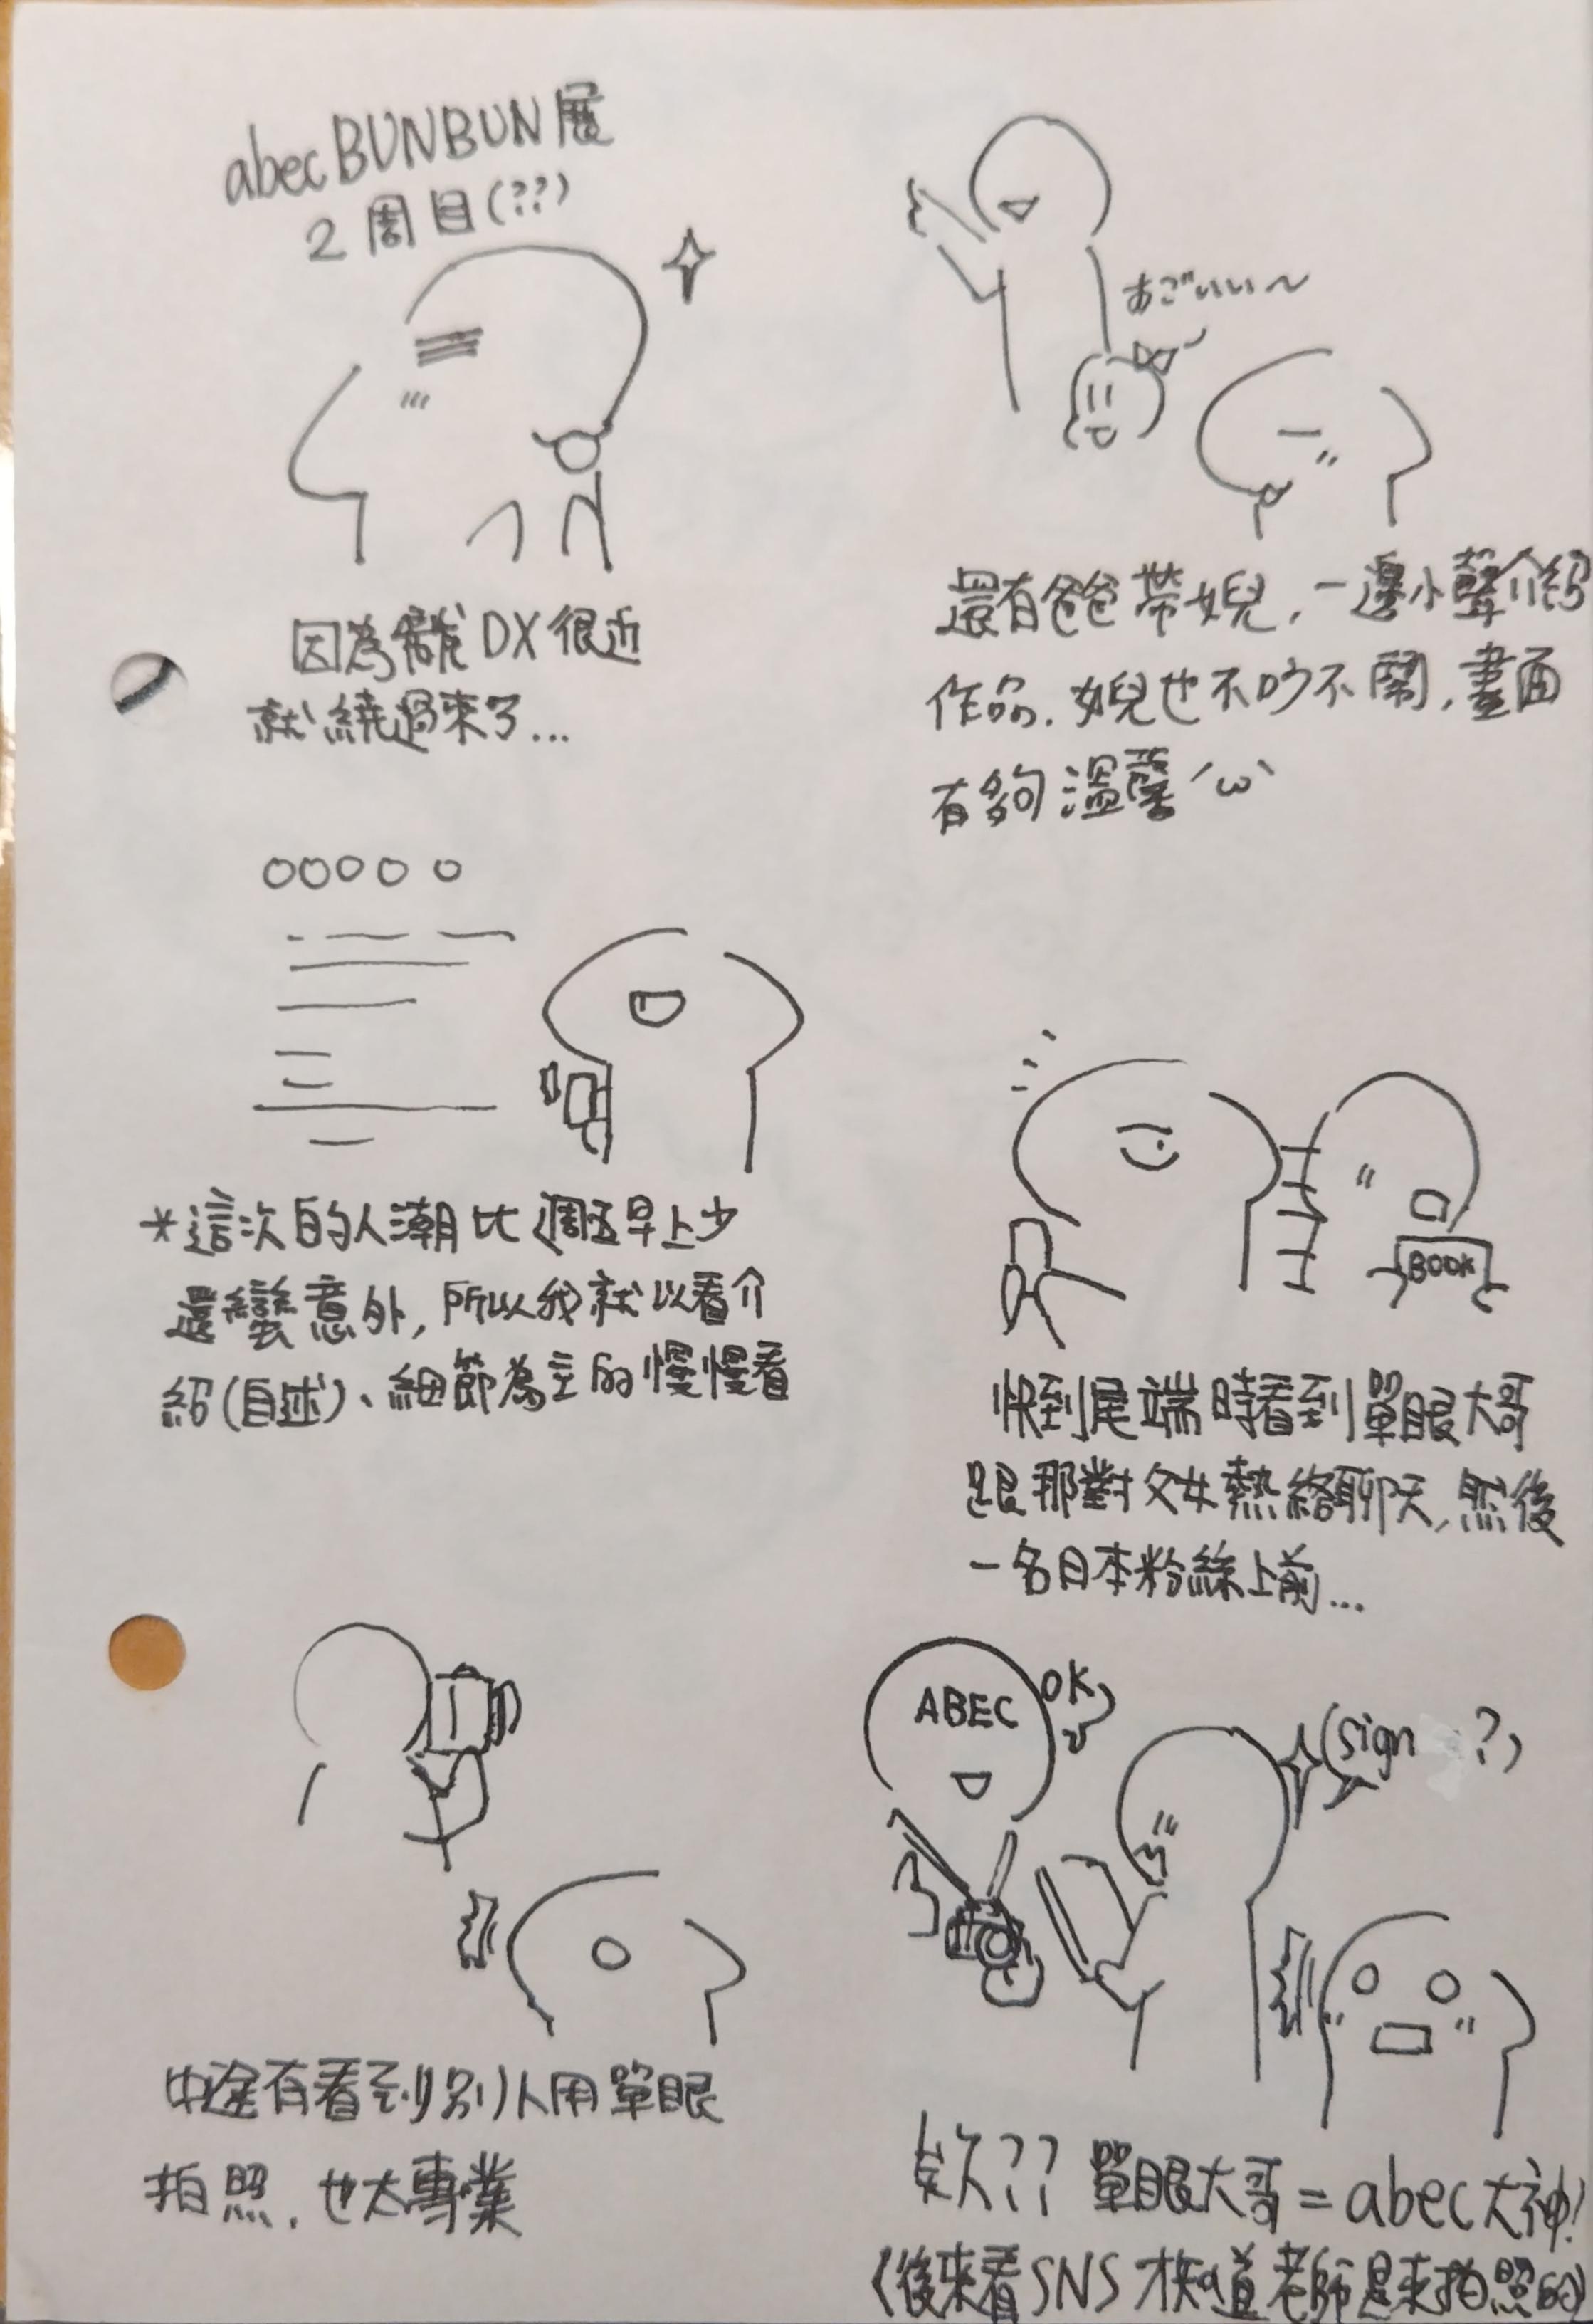 abecBUNBUN展
2周目(??)
因為離DX很近
就繞過來了...
*這次的人潮比週五早上少
還蠻意外,所以我就以看介
紹(自述)、細節為主的慢慢看
中途有看到別人用單眼
拍照,也太專業
あごいい~
還有爸爸帶女兒,一邊小聲介紹
作品,女兒也不吵不鬧,畫面
有夠溫馨´ω`
BOOK
快到尾端時看到單眼大哥
跟那對父女熱絡聊天,然後
一名日本粉絲上前...
ABEC
OK
sign ?
欸?? 單眼大哥=abec大神!
(後來看SNS才知道老師是來拍照的)